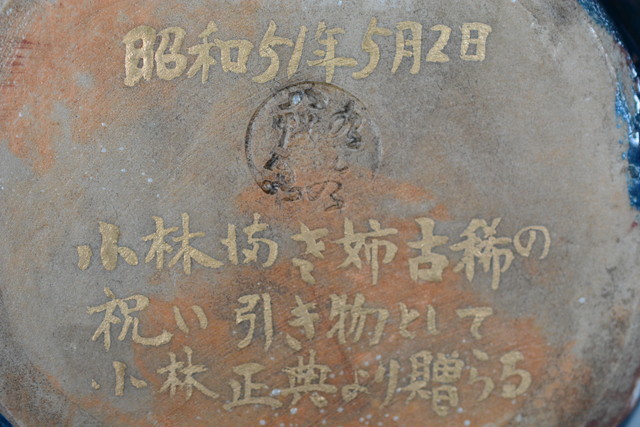 昭和51年5月2日
小林まき姉古稀の
祝い引き物として
小林正典より贈らる